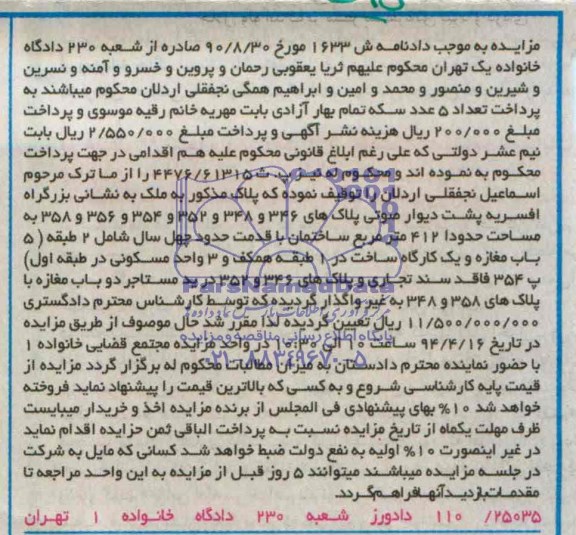 مزایـده به موجب دادنامـه ش ۱۶۳۳ مورخ ۹۰/۸/۳۰ صادره از شـعبه ۲۳۰ دادگاه
خانواده یک تهران محکوم علیهم ثریا یعقوبی رحمان و پروین و خسرو و آمنه و نسرین
و شیرین و منصور و محمد و امین و ابراهیم همگی نجفقلی اردلان محکوم میباشند به
پرداخت تعداد ۵ عدد سـکه تمام بهار آزادی بابت مهریه خانم رقیه موسوی و پرداخت
مبلـغ ۲۰۰/۰۰۰ ریال هزینه نشـر آگهـی و پرداخت مبلـغ ۲/۵۵۰/۰۰۰ ریال بابت
نیم عشـر دولتـی که علی رغم ابلاغ قانونی محکوم علیه هـم اقدامی در جهت پرداخت
محکـوم به نمـوده اند و محکـوم له نیـز پ. ث ۴۴۷۶/۶۱۳۱۵ را از مـا ترک مرحوم
اسـماعیل نجفقلـی اردلان را توقیف نموده که پلاک مذکور به ملک به نشـانی بزرگراه
افسـریه پشـت دیوار صوتی پلاک های ۳۴۶ و ۳۴۸ و ۳۵۲ و ۳۵۴ و ۳۵۶ و ۳۵۸ به
مسـاحت حدودا ۴۱۲ متر مربع ساختمان با قدمت حدود چهل سال شامل ۲ طبقه ( ۵
باب مغازه و یک کارگاه ساخت در ۱ طبقـه همکف و ۳ واحد مسـکونی در طبقه اول)
پ ۳۵۴ فاقـد سـند تجـاری و پلاک های ۳۴۶ و ۳۵۲ در ید مسـتاجر دو بـاب مغازه با
پلاک های ۳۵۸ و ۳۴۸ به غیر واگذار گردیده که توسـط کارشـناس محترم دادگستری
۱۱/۵۰۰/۰۰۰/۰۰۰ ریال تعیین گردیده لذا مقرر شد حال موصوف از طریق مزایده
در تاریخ ۹۴/۴/۱۶ ساعـت ۱۰ الی ۱۰:۳۰ در واحد مزایده مجتمع قضایی خانواده ۱
با حضور نماینده محترم دادسـتان به میزان مطالبات محکوم له برگزار گردد مزایده از
قیمت پایه کارشناسـی شـروع و به کسـی که بالاترین قیمت را پیشنهاد نماید فروخته
خواهد شد ۱۰% بهای پیشنهادی فی المجلس از برنده مزایده اخذ و خریدار میبایست
ظرف مهلت یکماه از تاریخ مزایده نسـبت بـه پرداخت الباقی ثمن مزایده اقدام نماید
در غیر اینصورت ۱۰% اولیه به نفع دولت ضبط خواهد شـد کسانی که مایل به شرکت
در جلسـه مزایـده میباشـند میتوانند ۵ روز قبـل از مزایده به این واحـد مراجعه تا
مقدمـات بازدیـد آنهـا فراهـم گـردد.
۲۵۰۳۵/ ۱۱۰ دادورز شـعبه ۲۳۰ دادگاه خانـواده ۱ تهـران
ParsNamadData
پایگاه اطلاع رسانی مناقصه و مزایده
۰۲۱-۸۸۳۴۹۶۷۰-۵